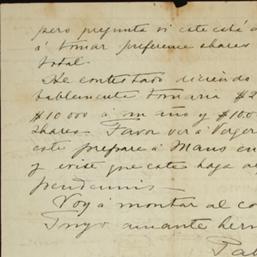 pero pregunta si este está d
á tomar preference shares
total.
He contestado diciendo
bablemente tomaria $2
$10 000 á m uno y $10.0
shares. Favor ver á Verger
este prepare á Mano en
y evise que este haga al
pendennis.
Voy á montar al co
Tuyo amante herm
Pab